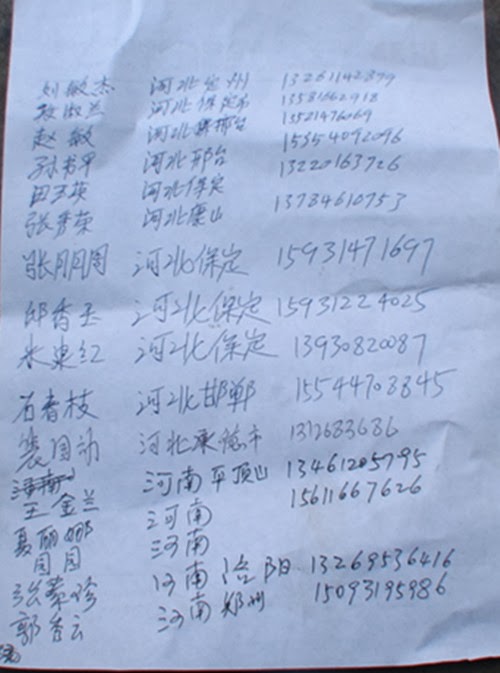 刘敏杰 河北定州 13261142899
敖淑兰 河北保定市 13581662918
赵敏 河北邢台 13521476069
孙书平 河北邢台 15354092096
田玉英 河北保定 13220163726
张秀荣 河北唐山 13784610753
张月周 河北保定 15931471697
邱香玉 河北保定 15931224025
米東红 河北保定 13930820087
石香枝 河北邯郸 15544708845
裴国动 河北承德市 1312683686
王金兰 河南平顶山 13461205795
夏丽娜 河南 15611667626
周周 河南
张荣珍 河南洛阳 13269536416
郭香云 河南郑州 15093195986